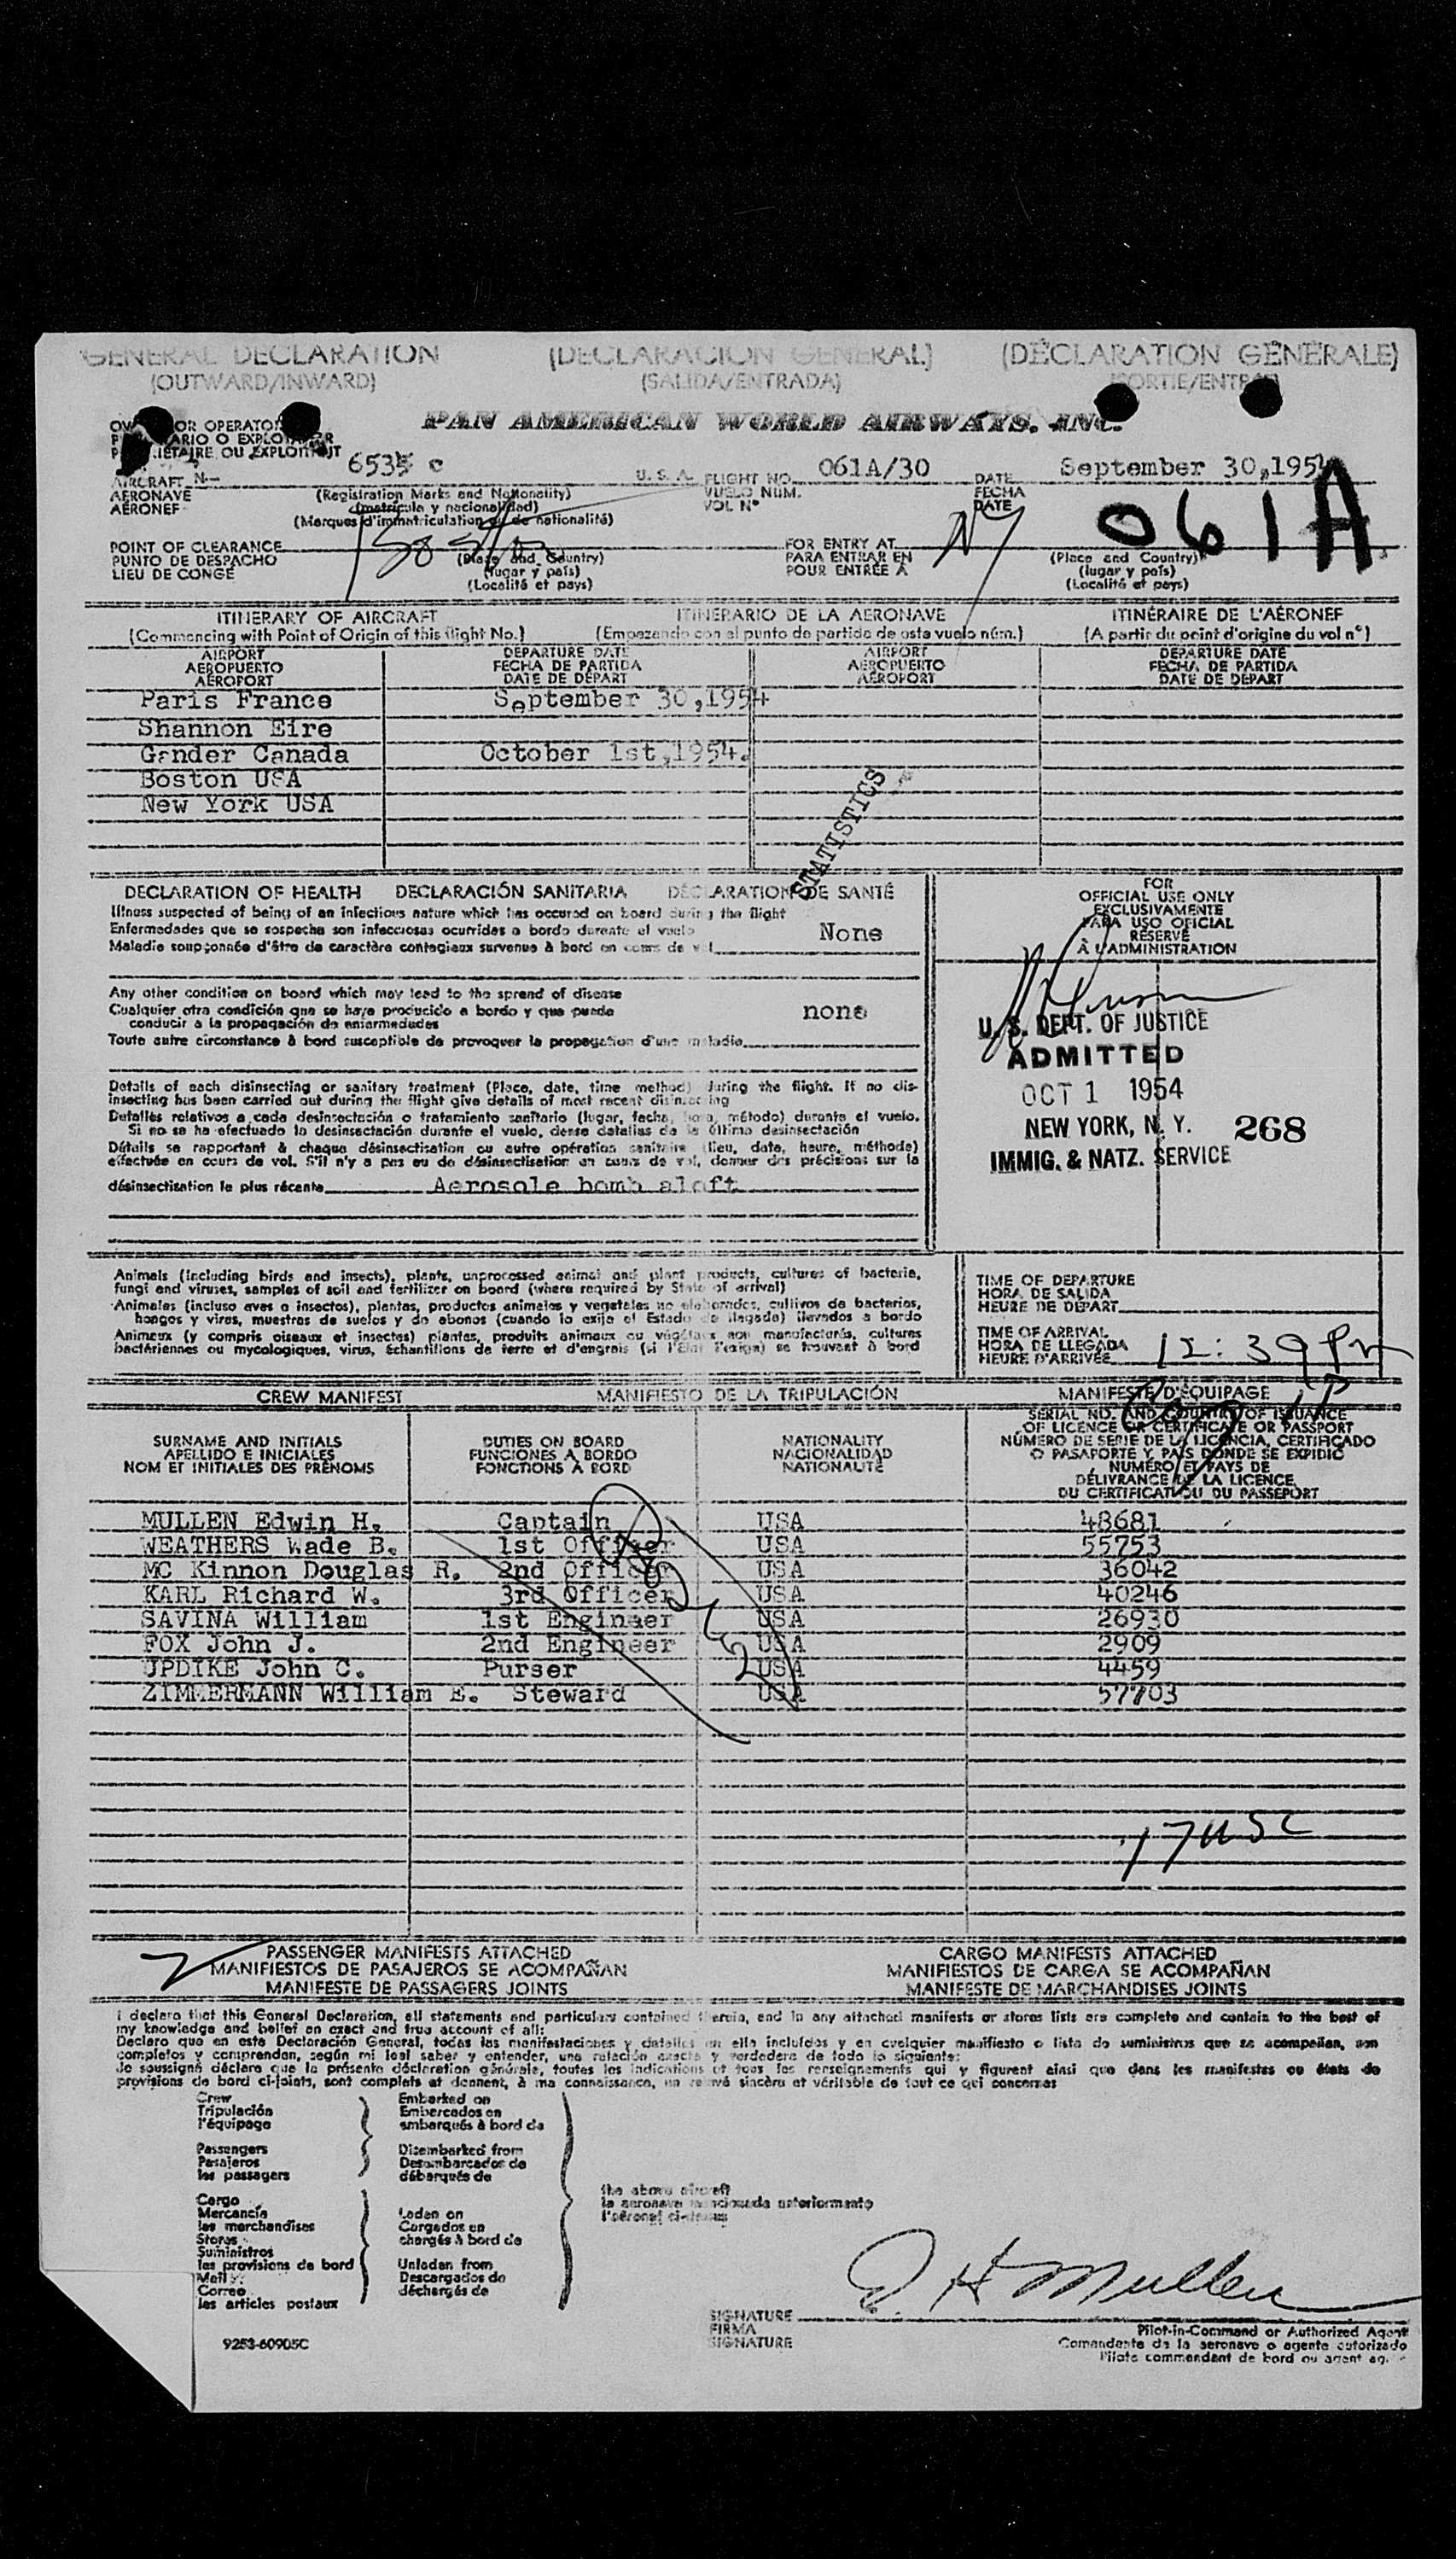 GENERAL DECLARATION (DECLARACION GENERAL) (DÉCLARATION GÉNÉRALE)
(OUTWARD/INWARD) (SALIDA/ENTRADA)
PAN AMERICAN WORLD AIRWAYS, INC.
AIRCRAFT N- 6535 c U. S. A. FLIGHT NO. 061A/30 DATE September 30,1954
AERONAVE (Registration Marks and Nationality) VUELO NÚM. FECHA
AÉRONEF (matrícula y nacionalidad) VOL Nº DATE
(Marques d'immatriculation et de nationalité)
061A
POINT OF CLEARANCE Boston FOR ENTRY AT NY
PUNTO DE DESPACHO (Place and Country) PARA ENTRAR EN (Place and Country)
LIEU DE CONGÉ (lugar y país) POUR ENTRÉE À (lugar y país)
(Localité et pays) (Localité et pays)
ITINERARY OF AIRCRAFT ITINERARIO DE LA AERONAVE ITINÉRAIRE DE L'AÉRONEF
(Commencing with Point of Origin of this flight No.) (Empezando con el punto de partida de este vuelo núm.) (A partir du point d'origine du vol nº)
AIRPORT DEPARTURE DATE AIRPORT DEPARTURE DATE
AEROPUERTO FECHA DE PARTIDA AEROPUERTO FECHA DE PARTIDA
AÉROPORT DATE DE DÉPART AÉROPORT DATE DE DÉPART
Paris France September 30,1954
Shannon Eire
Gander Canada October 1st,1954.
Boston USA
New York USA
STATISTICS
DECLARATION OF HEALTH DECLARACIÓN SANITARIA DÉCLARATION DE SANTÉ
Illness suspected of being of an infectious nature which has occured on board during the flight
Enfermedades que se sospecha son infecciosas ocurridas a bordo durante el vuelo None
Maladie soupçonnée d'être de caractère contagieux survenue à bord en cours de vol
Any other condition on board which may lead to the spread of disease
Cualquier otra condición que se haya producido a bordo y que pueda none
conducir a la propagación de enfermedades
Toute autre circonstance à bord susceptible de provoquer la propagation d'une maladie
Details of each disinsecting or sanitary treatment (Place, date, time method) during the flight. If no dis-
insecting has been carried out during the flight give details of most recent disinsecting
Detalles relativos a cada desinsectación o tratamiento sanitario (lugar, fecha, hora, método) durante el vuelo.
Si no se ha efectuado la desinsectación durante el vuelo, dense detalles de la última desinsectación
Détails se rapportant à chaque désinsectisation ou autre opération sanitaire (lieu, date, heure, méthode)
effectuée en cours de vol. S'il n'y a pas eu de désinsectisation en cours de vol, donner des précisions sur la
désinsectisation la plus récente Aerosole bomb aloft
FOR
OFFICIAL USE ONLY
EXCLUSIVAMENTE
PARA USO OFICIAL
RÉSERVÉ
À L'ADMINISTRATION
U. S. DEPT. OF JUSTICE
ADMITTED
OCT 1 1954
NEW YORK, N. Y. 268
IMMIG. & NATZ. SERVICE
Animals (including birds and insects), plants, unprocessed animal and plant products, cultures of bacteria,
fungi and viruses, samples of soil and fertilizer on board (where required by State of arrival)
Animales (incluso aves o insectos), plantas, productos animales y vegetales no elaborados, cultivos de bacterias,
hongos y virus, muestras de suelos y de abonos (cuando lo exija el Estado de llegada) llevados a bordo
Animaux (y compris oiseaux et insectes) plantes, produits animaux ou végétaux non manufacturés, cultures
bactériennes ou mycologiques, virus, échantillons de terre et d'engrais (si l'État l'exige) se trouvant à bord
TIME OF DEPARTURE
HORA DE SALIDA
HEURE DE DÉPART
TIME OF ARRIVAL
HORA DE LLEGADA 12:39 Pm
HEURE D'ARRIVÉE
CREW MANIFEST MANIFIESTO DE LA TRIPULACIÓN MANIFESTE D'ÉQUIPAGE
SURNAME AND INITIALS DUTIES ON BOARD NATIONALITY SERIAL NO. AND COUNTRY OF ISSUANCE
APELLIDO E INICIALES FUNCIONES A BORDO NACIONALIDAD OF LICENCE OR CERTIFICATE OR PASSPORT
NOM ET INITIALES DES PRÉNOMS FONCTIONS À BORD NATIONALITÉ NÚMERO DE SERIE DE LA LICENCIA, CERTIFICADO
O PASAPORTE Y PAÍS DONDE SE EXPIDIÓ
NUMÉRO ET PAYS DE
DÉLIVRANCE DE LA LICENCE,
DU CERTIFICAT OU DU PASSEPORT
MULLEN Edwin H. Captain USA 48681
WEATHERS Wade B. 1st Officer USA 55753
MC Kinnon Douglas R. 2nd Officer USA 36042
KARL Richard W. 3rd Officer USA 40246
SAVINA William 1st Engineer USA 26930
FOX John J. 2nd Engineer USA 2909
UPDIKE John C. Purser USA 4459
ZIMMERMANN William E. Steward USA 57703
17 USC
PASSENGER MANIFESTS ATTACHED CARGO MANIFESTS ATTACHED
MANIFIESTOS DE PASAJEROS SE ACOMPAÑAN MANIFIESTOS DE CARGA SE ACOMPAÑAN
MANIFESTE DE PASSAGERS JOINTS MANIFESTE DE MARCHANDISES JOINTS
I declare that this General Declaration, all statements and particulars contained therein, and in any attached manifests or stores lists are complete and contain to the best of
my knowledge and belief an exact and true account of all:
Declaro que en esta Declaración General, todas las manifestaciones y detalles en ella incluídos y en cualquier manifiesto o lista de suministros que se acompañan, son
completos y comprendan, según mi leal saber y entender, una relación exacta y verdadera de todo lo siguiente:
Je soussigné déclare que la présente déclaration générale, toutes les indications et tous les renseignements qui y figurent ainsi que dans les manifestes ou états de
provisions de bord ci-joints, sont complets et donnent, à ma connaissance, un relevé sincère et véritable de tout ce qui concerne:
Crew Embarked on
Tripulación Embarcados en
l'équipage embarqués à bord de
Passengers Disembarked from
Pasajeros Desembarcados de
les passagers débarqués de
the above aircraft
la aeronave mencionada anteriormente
l'aéronef ci-dessus
Cargo
Mercancía Laden on
les marchandises Cargados en
Stores chargés à bord de
Suministros
les provisions de bord Unladen from
Mail Descargados de
Correo déchargés de
les articles postaux
E H Mullen
SIGNATURE
FIRMA Pilot-in-Command or Authorized Agent
SIGNATURE Comandante de la aeronave o agente autorizado
Pilote commandant de bord ou agent
9253-60905C